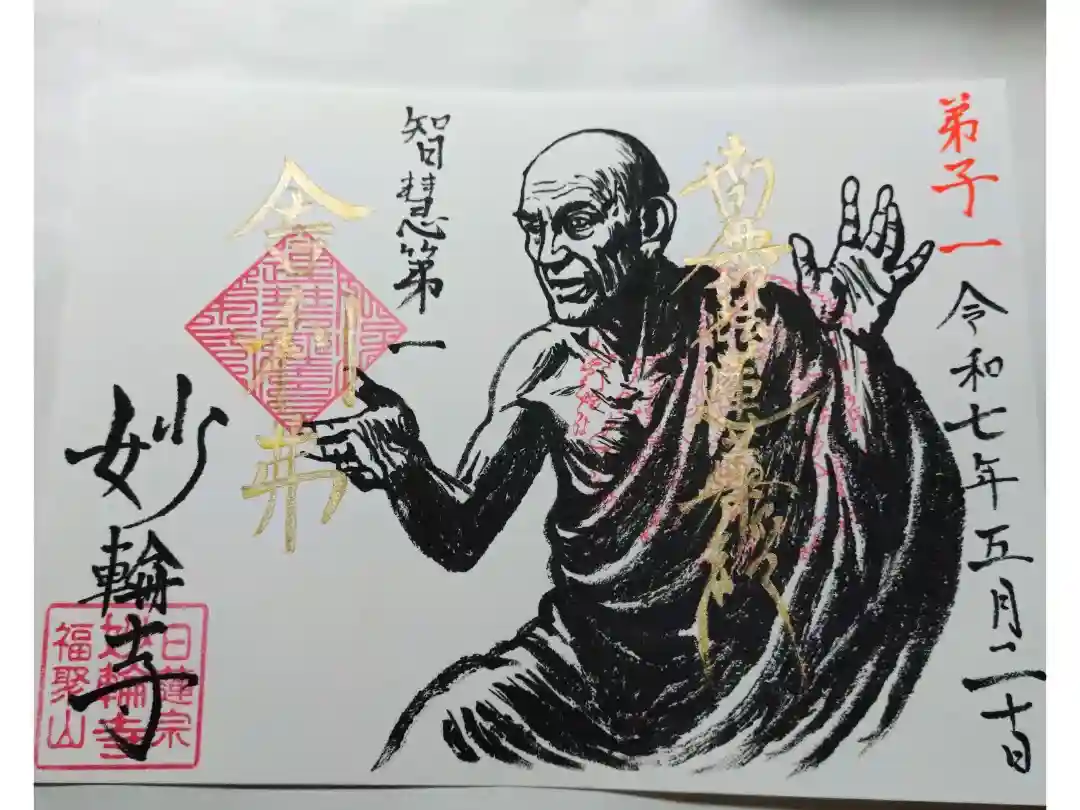 弟子一
令和七年五月二十日
南無妙法蓮華経
智慧第一
舎利弗
妙輪寺
日蓮宗
妙輪寺
福聚山